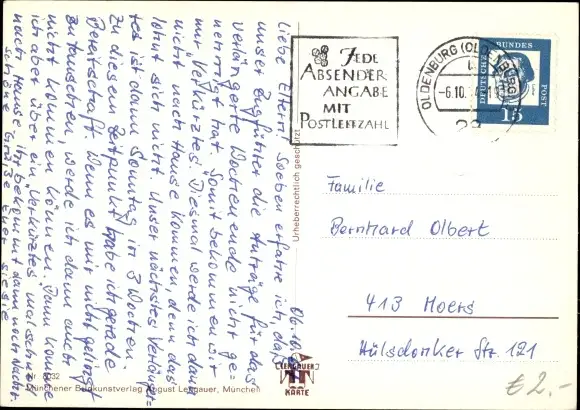 Ob. 10.
Liebe Eltern! Soeben erfahre ich, daß
unser Zugführer die Anträge für das
verlängerte Wochenende nicht ge=
nehmigt hat. Somit bekommen wir
nur "Verkürztes". Diesmal werde ich dann
nicht nach Hause kommen, denn das
lohnt sich nicht. Unser nächstes Verlänger=
tes ist dann Sonntag in 3 Wochen.
Zu diesem Zeitpunkt habe ich gerade
Bereitschaft. Wenn es mir nicht gelingt
zu tauschen, werde ich dann auch
nicht kommen können. Dann komme
ich aber über ein "Verkürztes" mal schnell
nach Hause. Ihr bekommt dann noch Nachr.
Schöne Grüße Euer
JEDE
ABSENDER-
ANGABE
MIT
POSTLEITZAHL
OLDENBURG (OLDENBURG)
-6.10.
DEUTSCHE BUNDESPOST
15
Familie
Bernhard Olbert
413 Moers
Hülsdonker Str. 121
€ 2,-
Urheberrechtlich geschützt
LENGAUER
KARTE
Münchener Bildkunstverlag August Lengauer, München